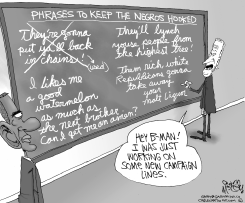 PHRASES TO KEEP THE NEGROS HOOKED
They're gonna
put y'all back
in chains!
(used)
I likes me
a good
watermelon
as much as
the next brother.
Can I get me an amen?
They'll lynch
youse people from
the highest tree!
Them rich white
Republicans gonna
take away
your
malt liquor.
HEY B-MAN!
I WAS JUST
WORKING ON
SOME NEW CAMPAIGN
LINES.